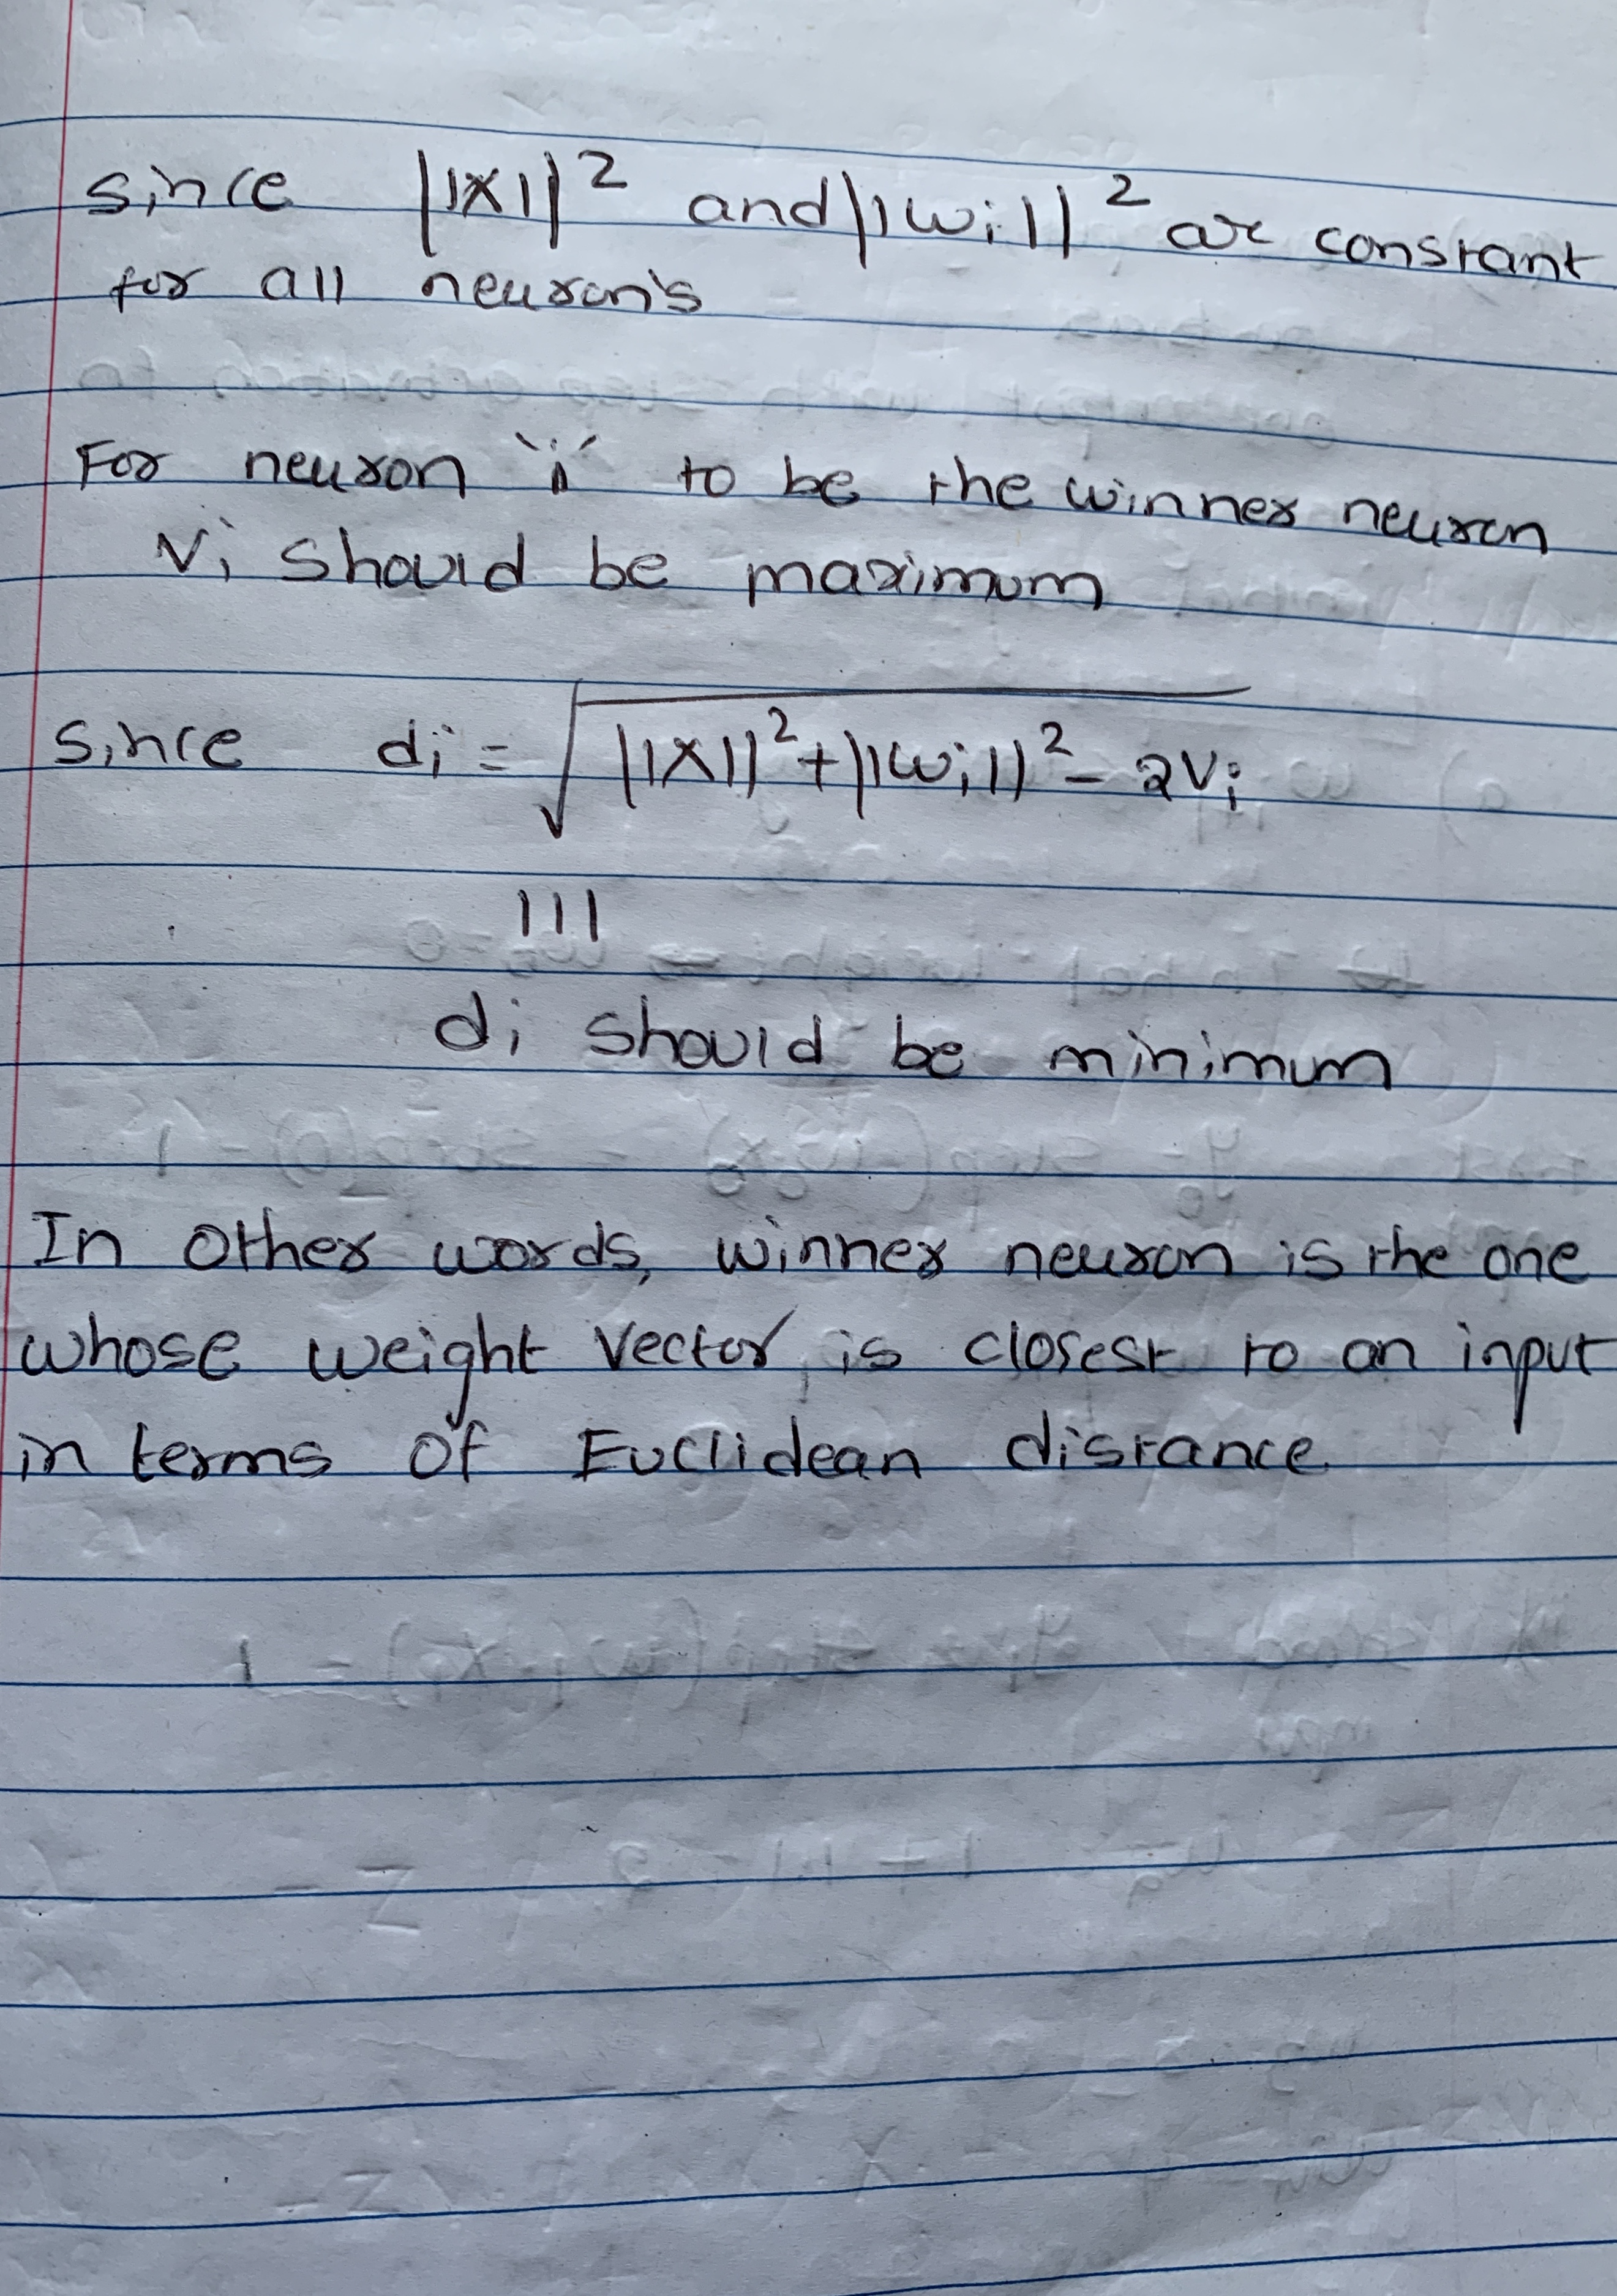 since ||X||² and ||wi||² are constant
for all neuron's
For neuron `i´ to be the winner neuron
Vi should be maximum
since di = √||X||² + ||wi||² - 2Vi
|||
di should be minimum
In other words, winner neuron is the one
whose weight vector, is closest to an input
in terms of Euclidean distance